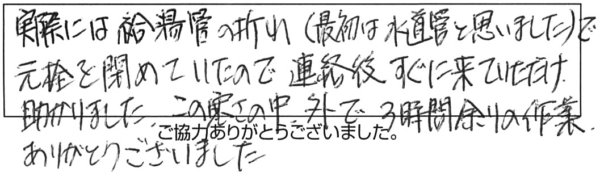 実際には給湯管の折れ（最初は水道管と思いました）で
元栓を閉めていたので連絡後すぐに来ていただけ
助かりました この寒さの中 外で 3時間余りの作業
ご協力ありがとうございました。
ありがとうございました